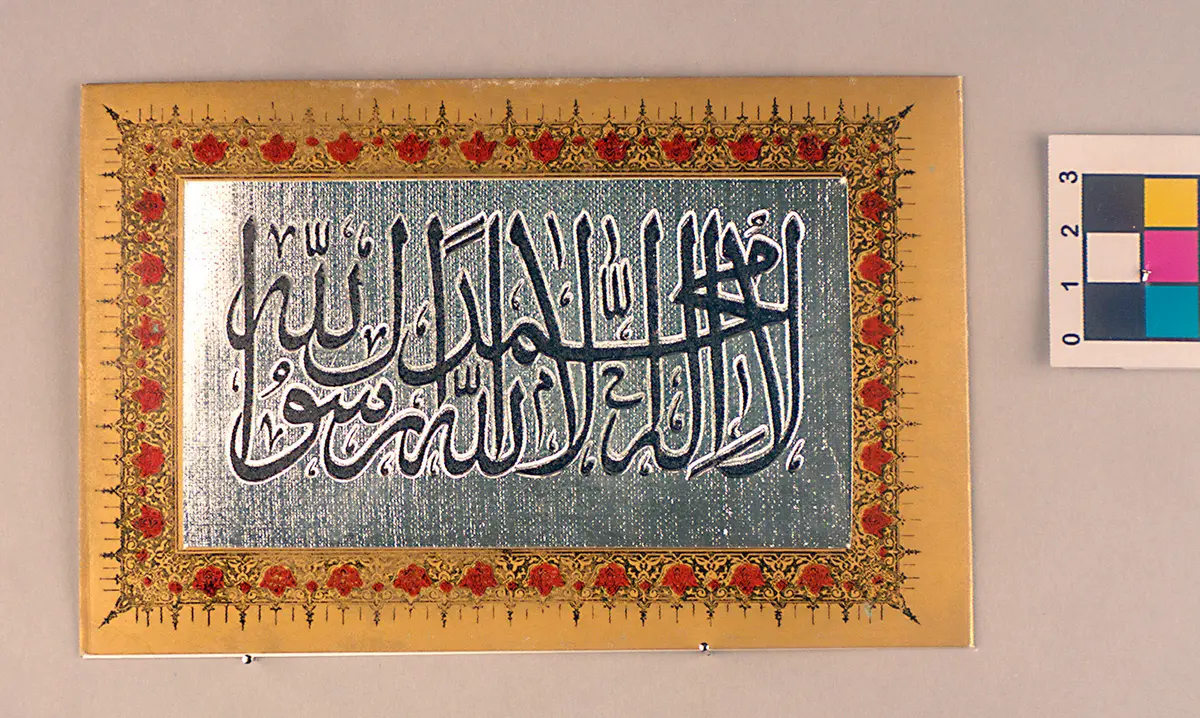 لا إله إلا الله محمد رسول الله
3
2
1
0